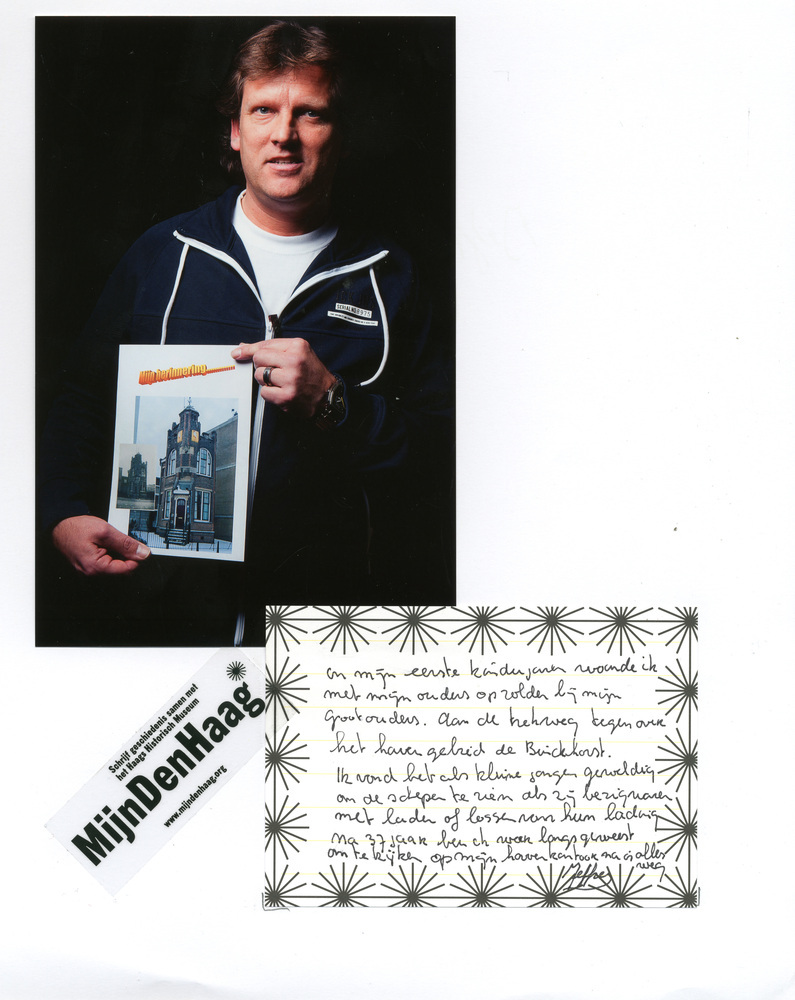 Mijn herinnering..........
Schrijf geschiedenis samen met
het Haags Historisch Museum
MijnDenHaag
www.mijndenhaag.org
in mijn eerste kinderjaren woonde ik
met mijn ouders op zolder bij mijn
grootouders. Aan de trekweg tegenover
het haven gebied de Binckhorst.
Ik vond het als kleine jongen geweldig
om de schepen te zien als zij bezig waren
met laden of lossen van hun lading
Na 37 jaar ben ik weer langs geweest
om te kijken op mijn havenkantoor na is alles
weg